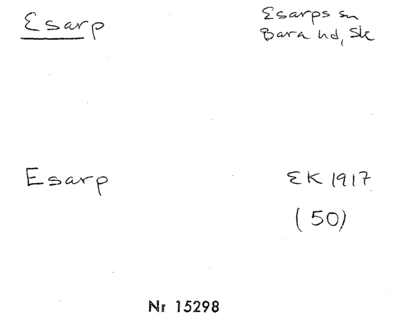 Esarp
Esarps sn
Bara hd, Sk
Esarp
EK 1917
(50)
Nr 15298